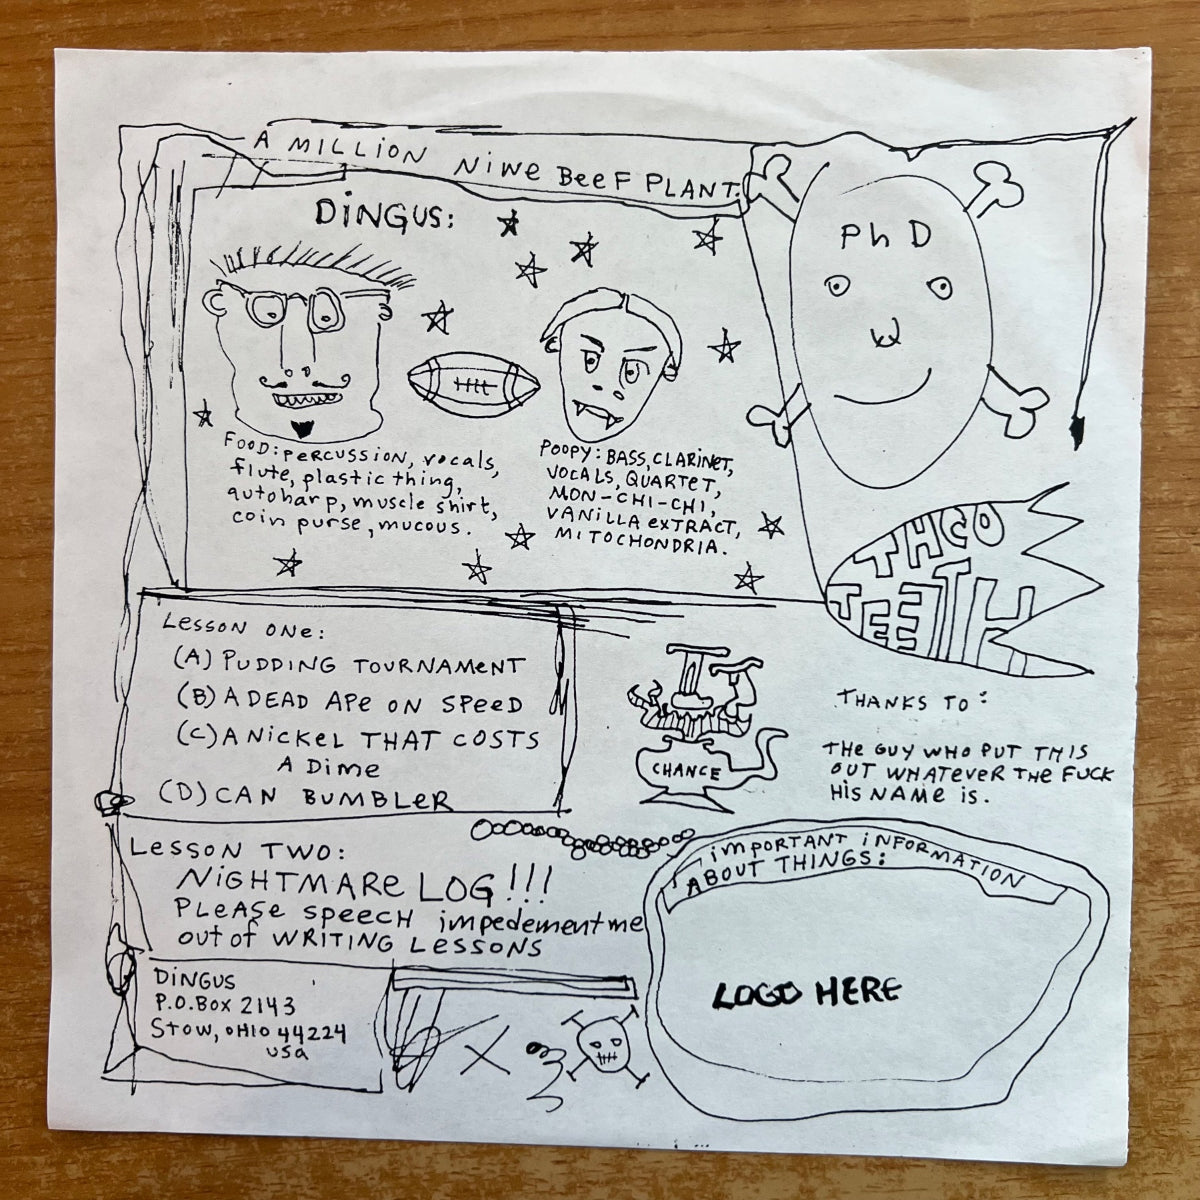 A MILLION NIWE BEEF PLANT.
DINGUS:
PhD
FOOD: PERCUSSION, vocals,
flute, plastic thing,
autoharp, muscle shirt,
coin purse, mucous.
POOPY: BASS, CLARINET,
VOCALS, QUARTET,
MON-CHI-CHI,
VANILLA EXTRACT,
MITOCHONDRIA.
THCO
TEETH
LESSON ONE:
(A) PUDDING TOURNAMENT
(B) A DEAD APE ON SPEED
(C) A NICKEL THAT COSTS
A DIME
(D) CAN BUMBLER
CHANCE
THANKS TO:
THE GUY WHO PUT THIS
OUT WHATEVER THE FUCK
HIS NAME IS.
LESSON TWO:
NIGHTMARE LOG!!!
PLEASE SPEECH impedement me
out of WRITING LESSONS
IMPORTANT INFORMATION
ABOUT THINGS:
LOGO HERE
DINGUS
P.O. BOX 2143
STOW, OHIO 44224
USA